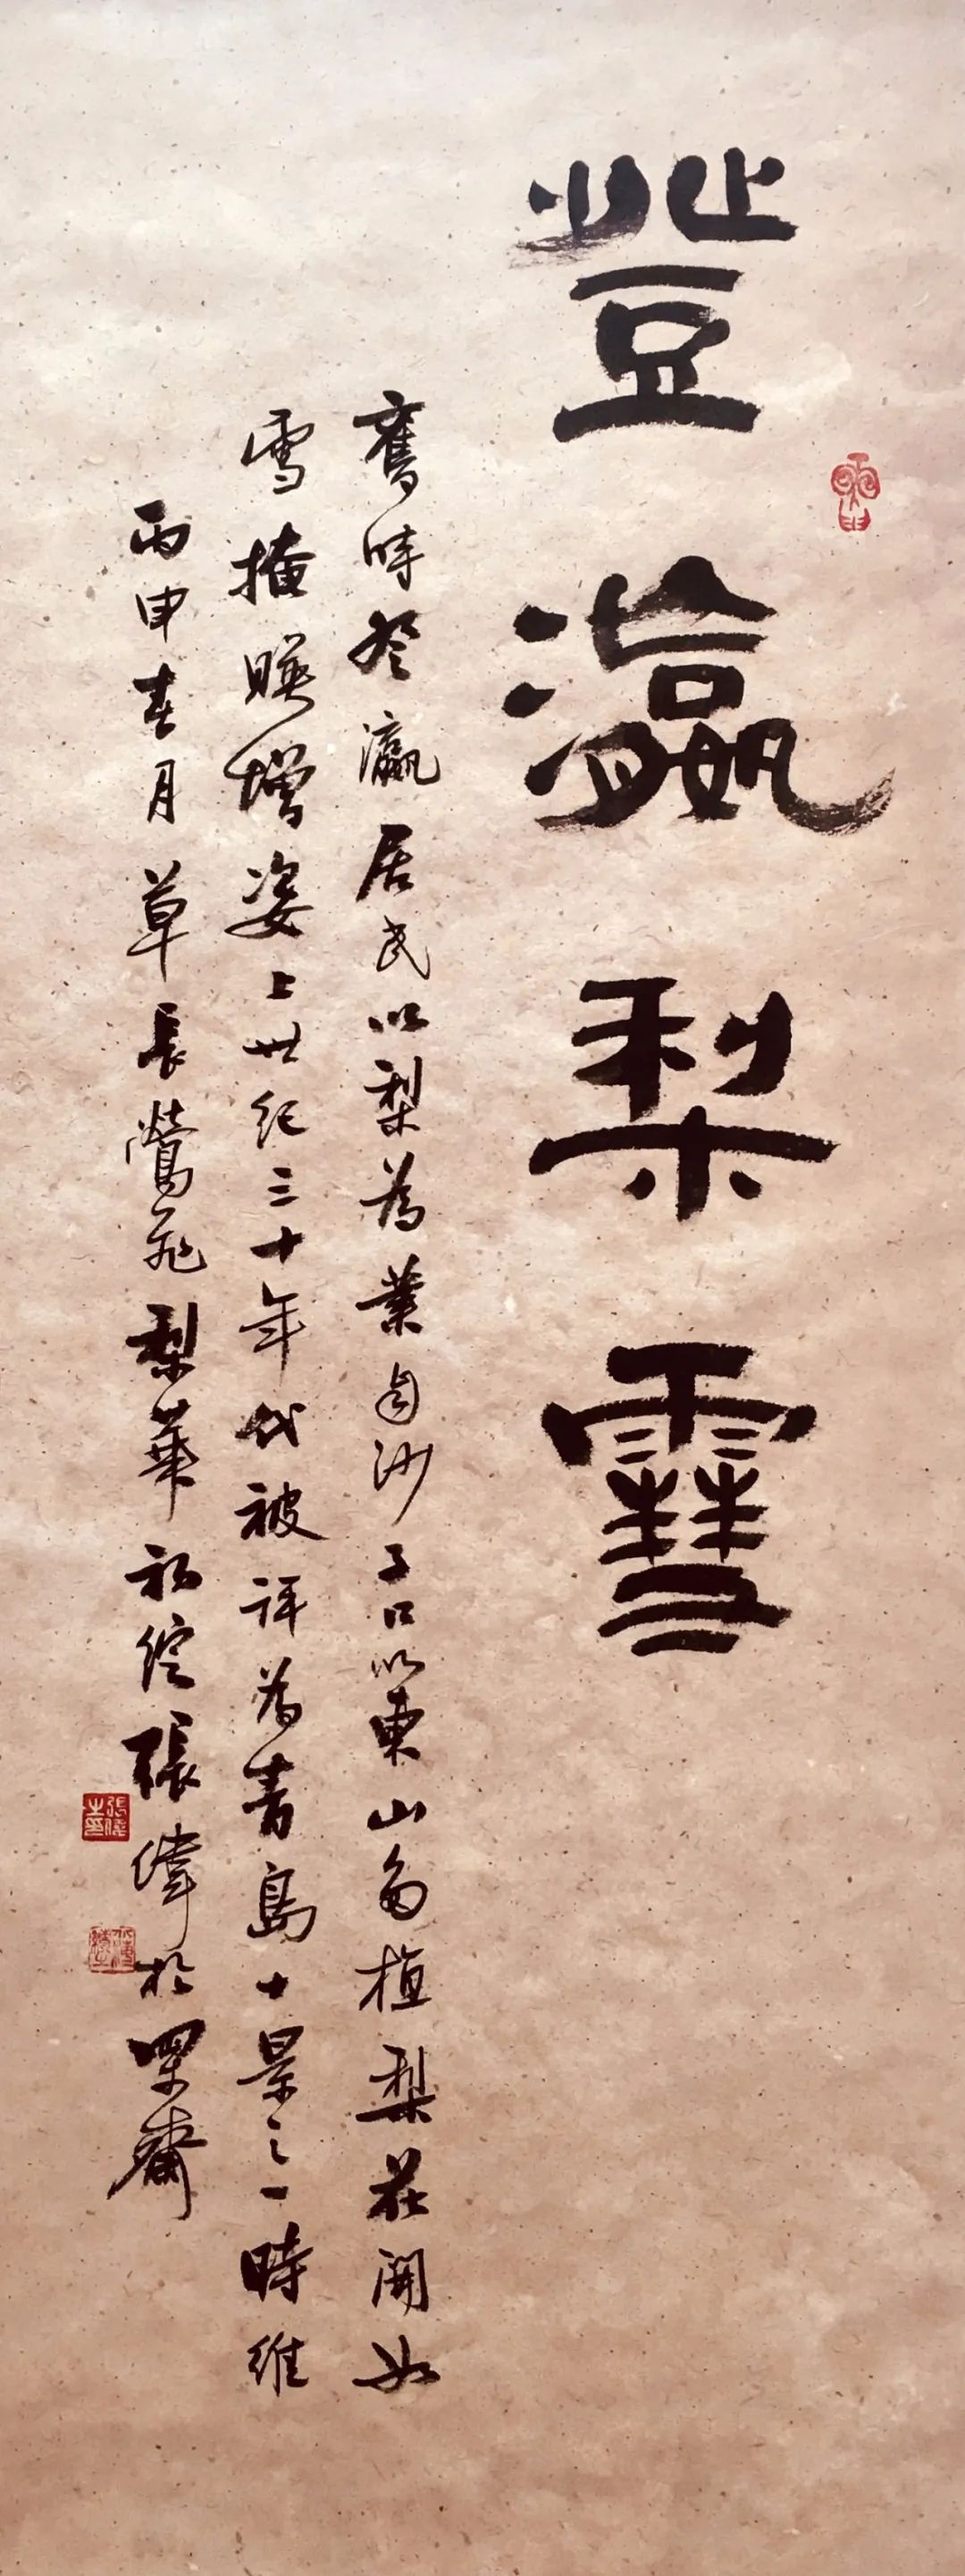 登瀛梨雪
舊時登瀛居民以梨為業自沙子口以東山多植梨花開如
雪掩映增姿上世紀三十年代被評為青島十景之一時維
丙申春月草長鶯飛梨華初綻張偉於墨齋